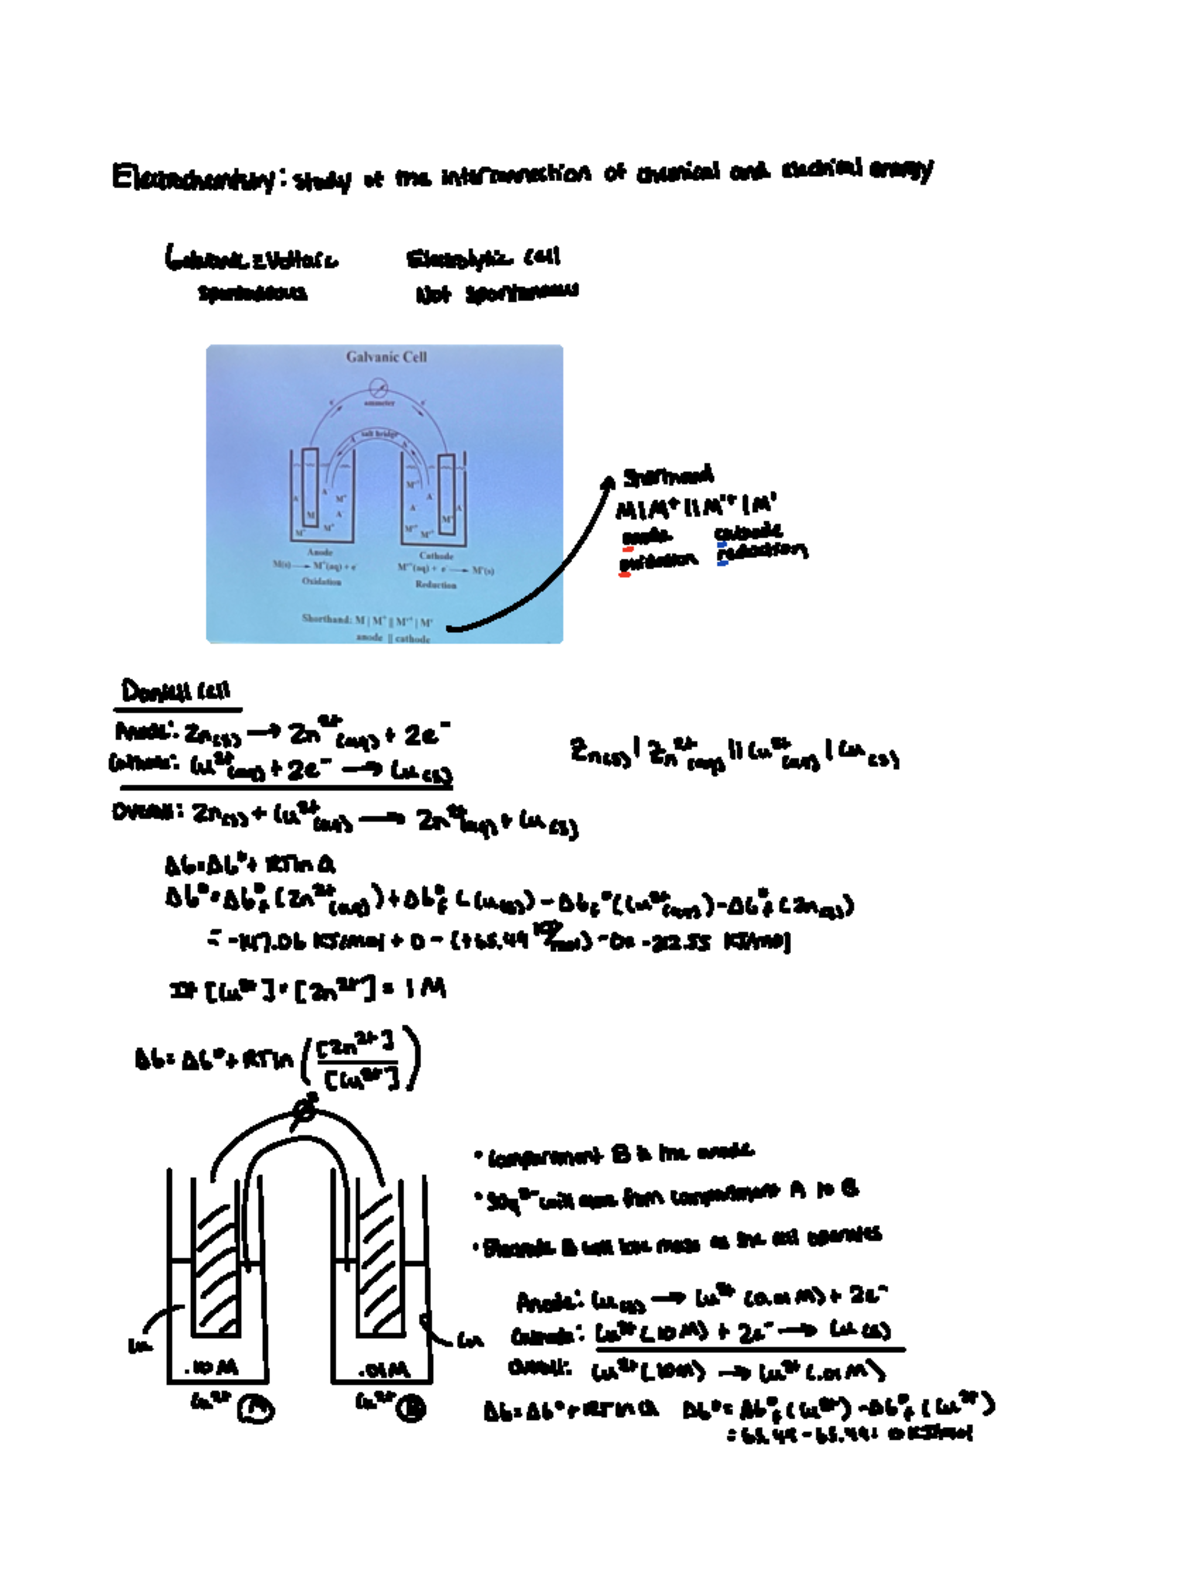 Electrochemistry: study of the interconnection of chemical and electrical energy
Galvanic = Voltaic
Electrolytic Cell
Spontaneous
Not Spontaneous
Galvanic Cell
e⁻ ammeter e⁻
salt bridge
Anode
Cathode
M(s) → M⁺(aq) + e⁻
M'⁺(aq) + e⁻ → M'(s)
Oxidation
Reduction
Shorthand: M | M⁺ || M'⁺ | M'
anode || cathode
Shorthand
M | M⁺ || M'⁺ | M'
anode cathode
oxidation reduction
Daniell Cell
Anode: Zn(s) → Zn²⁺(aq) + 2e⁻
Cathode: Cu²⁺(aq) + 2e⁻ → Cu(s)
Zn(s) | Zn²⁺(aq) || Cu²⁺(aq) | Cu(s)
Overall: Zn(s) + Cu²⁺(aq) → Zn²⁺(aq) + Cu(s)
ΔG = ΔG° + RT ln Q
ΔG° = ΔG°f (Zn²⁺(aq)) + ΔG°f (Cu(s)) - ΔGf° (Cu²⁺(aq)) - ΔG°f (Zn(s))
= -147.06 KJ/mol + 0 - (+65.49 KJ/mol) - 0 = -212.55 KJ/mol
If [Cu²⁺] = [Zn²⁺] = 1 M
ΔG = ΔG° + RT ln ([Zn²⁺] / [Cu²⁺])
• Compartment B is the anode
• SO₄²⁻ will move from compartment A to B
• Electrode B will lose mass as the cell operates
Anode: Cu(s) → Cu²⁺ (0.01 M) + 2e⁻
Cathode: Cu²⁺ (.10 M) + 2e⁻ → Cu(s)
Overall: Cu²⁺ (.10M) → Cu²⁺ (.01 M)
Cu Cu
.10 M .01 M
Cu²⁺ A Cu²⁺ B
ΔG = ΔG° + RT ln Q ΔG° = ΔG°f (Cu²⁺) - ΔG°f (Cu²⁺)
= 65.49 - 65.49 = 0 KJ/mol